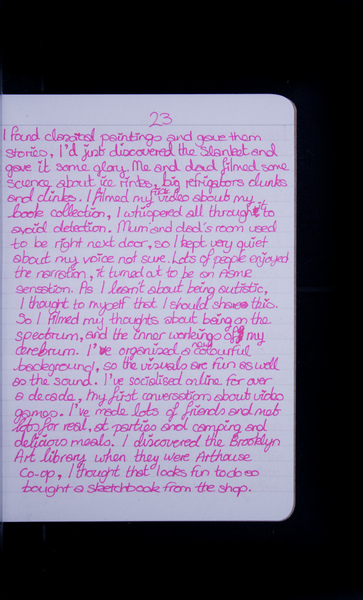 23
I found classical paintings and gave them
stories, I'd just discovered the Slanket and
gave it some glory. Me and dad filmed some
science about ice rinks, big refrigators clunks
and clinks. I filmed my first video about my
book collection, I whispered all through it to
avoid detection. Mum and dad's room used
to be right next door, so I kept very quiet
about my voice not sure. Lots of people enjoyed
the narration, it turned at to be an Asmr
sensation. As I learnt about being autistic,
I thought to myself that I should share this.
So I filmed my thoughts about being on the
spectrum, and the inner workings of my
cerebrum. I've organised a colourful
background, so the visuals are fun as well
as the sound. I've socialised online for over
a decade, my first conversations about video
games. I've made lots of friends and met
lots for real, at parties and camping and
delicious meals. I discovered the Brooklyn
Art library when they were Arthouse
Co-op, I thought that looks fun to do so
bought a sketchbook from the shop.